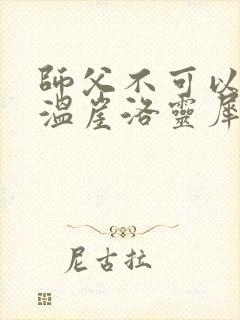 師父不可以
溫崖洛靈犀
尼古拉